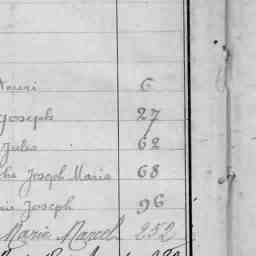 Henri 6
Joseph 27
Jules 62
Joseph Marie 68
Joseph 96
Marie Marcel 252